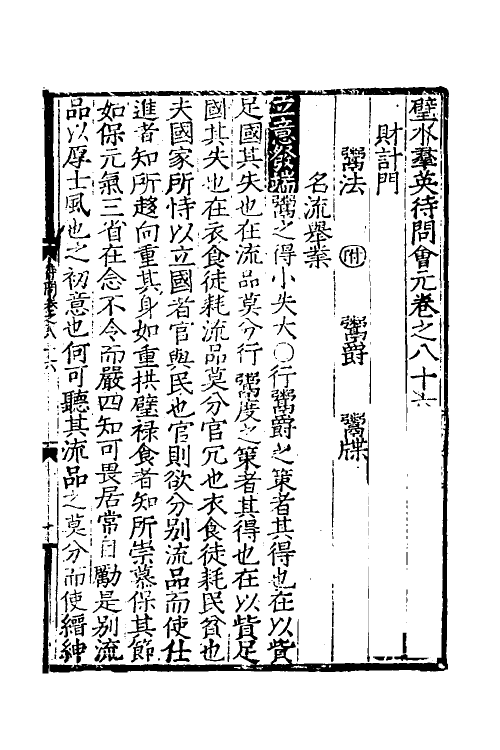 璧水羣英待問會元卷之八十六
財計門
鬻法 附 鬻爵 鬻牒
名流舉業
立意發端鬻之得小失大〇行鬻爵之策者其得也在以貲
足國其失也在流品莫分行鬻度之策者其得也在以貲足
國其失也在衣食徒耗流品莫分官冗也衣食徒耗民貧也
夫國家所恃以立國者官與民也官則欲分别流品而使仕
進者知所趨向重其身如重拱璧禄食者知所崇慕保其節
如保元氣三省在念不令而嚴四知可畏居常自勵是别流
品以厚士風也之初意也何可聽其流品之莫分而使縉紳